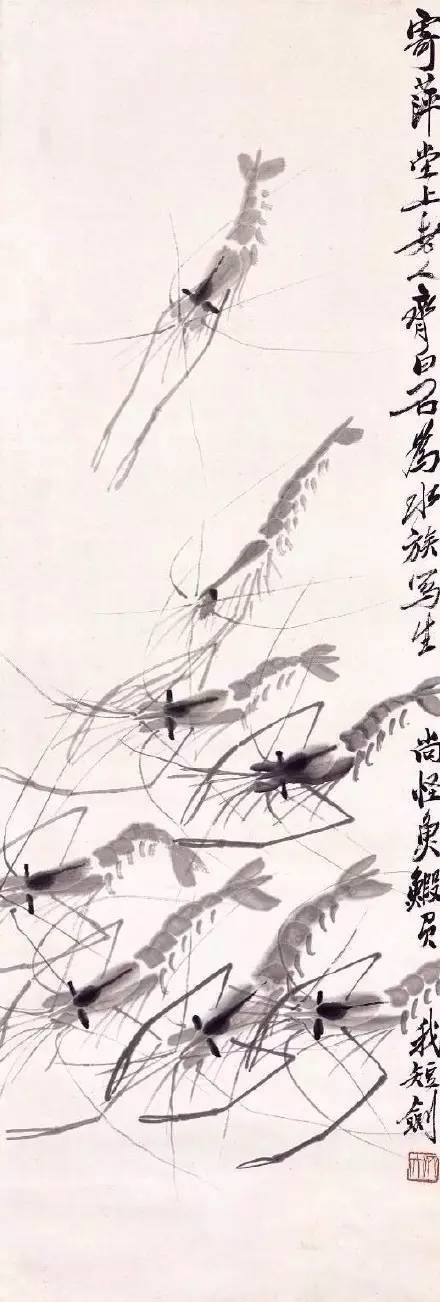 寄萍堂上老人齊白石爲水族写生 尚怪魚鰕 我短劍